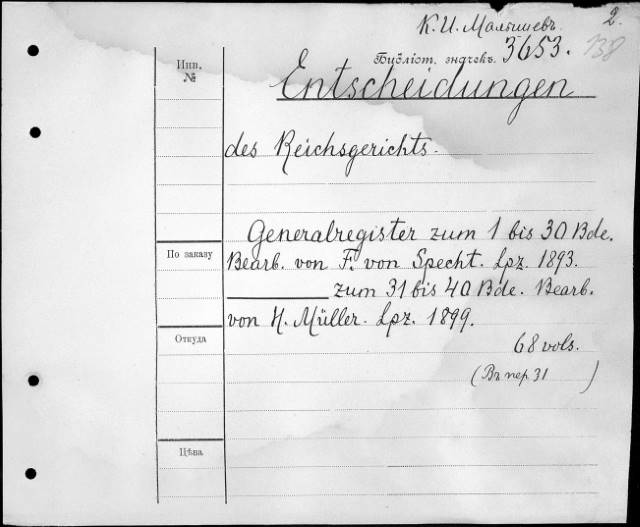 К. И. Малышевъ. 2.
Библіот. значекъ. 3653. 138
Инв.
№
Entscheidungen
des Reichsgerichts.
Generalregister zum 1 bis 30 Bde.
По заказу
Bearb. von F. von Specht. Lpz. 1893.
zum 31 bis 40 Bde. Bearb.
von H. Müller. Lpz. 1899.
Откуда
68 vols.
(Въ пер. 31 )
Цѣна